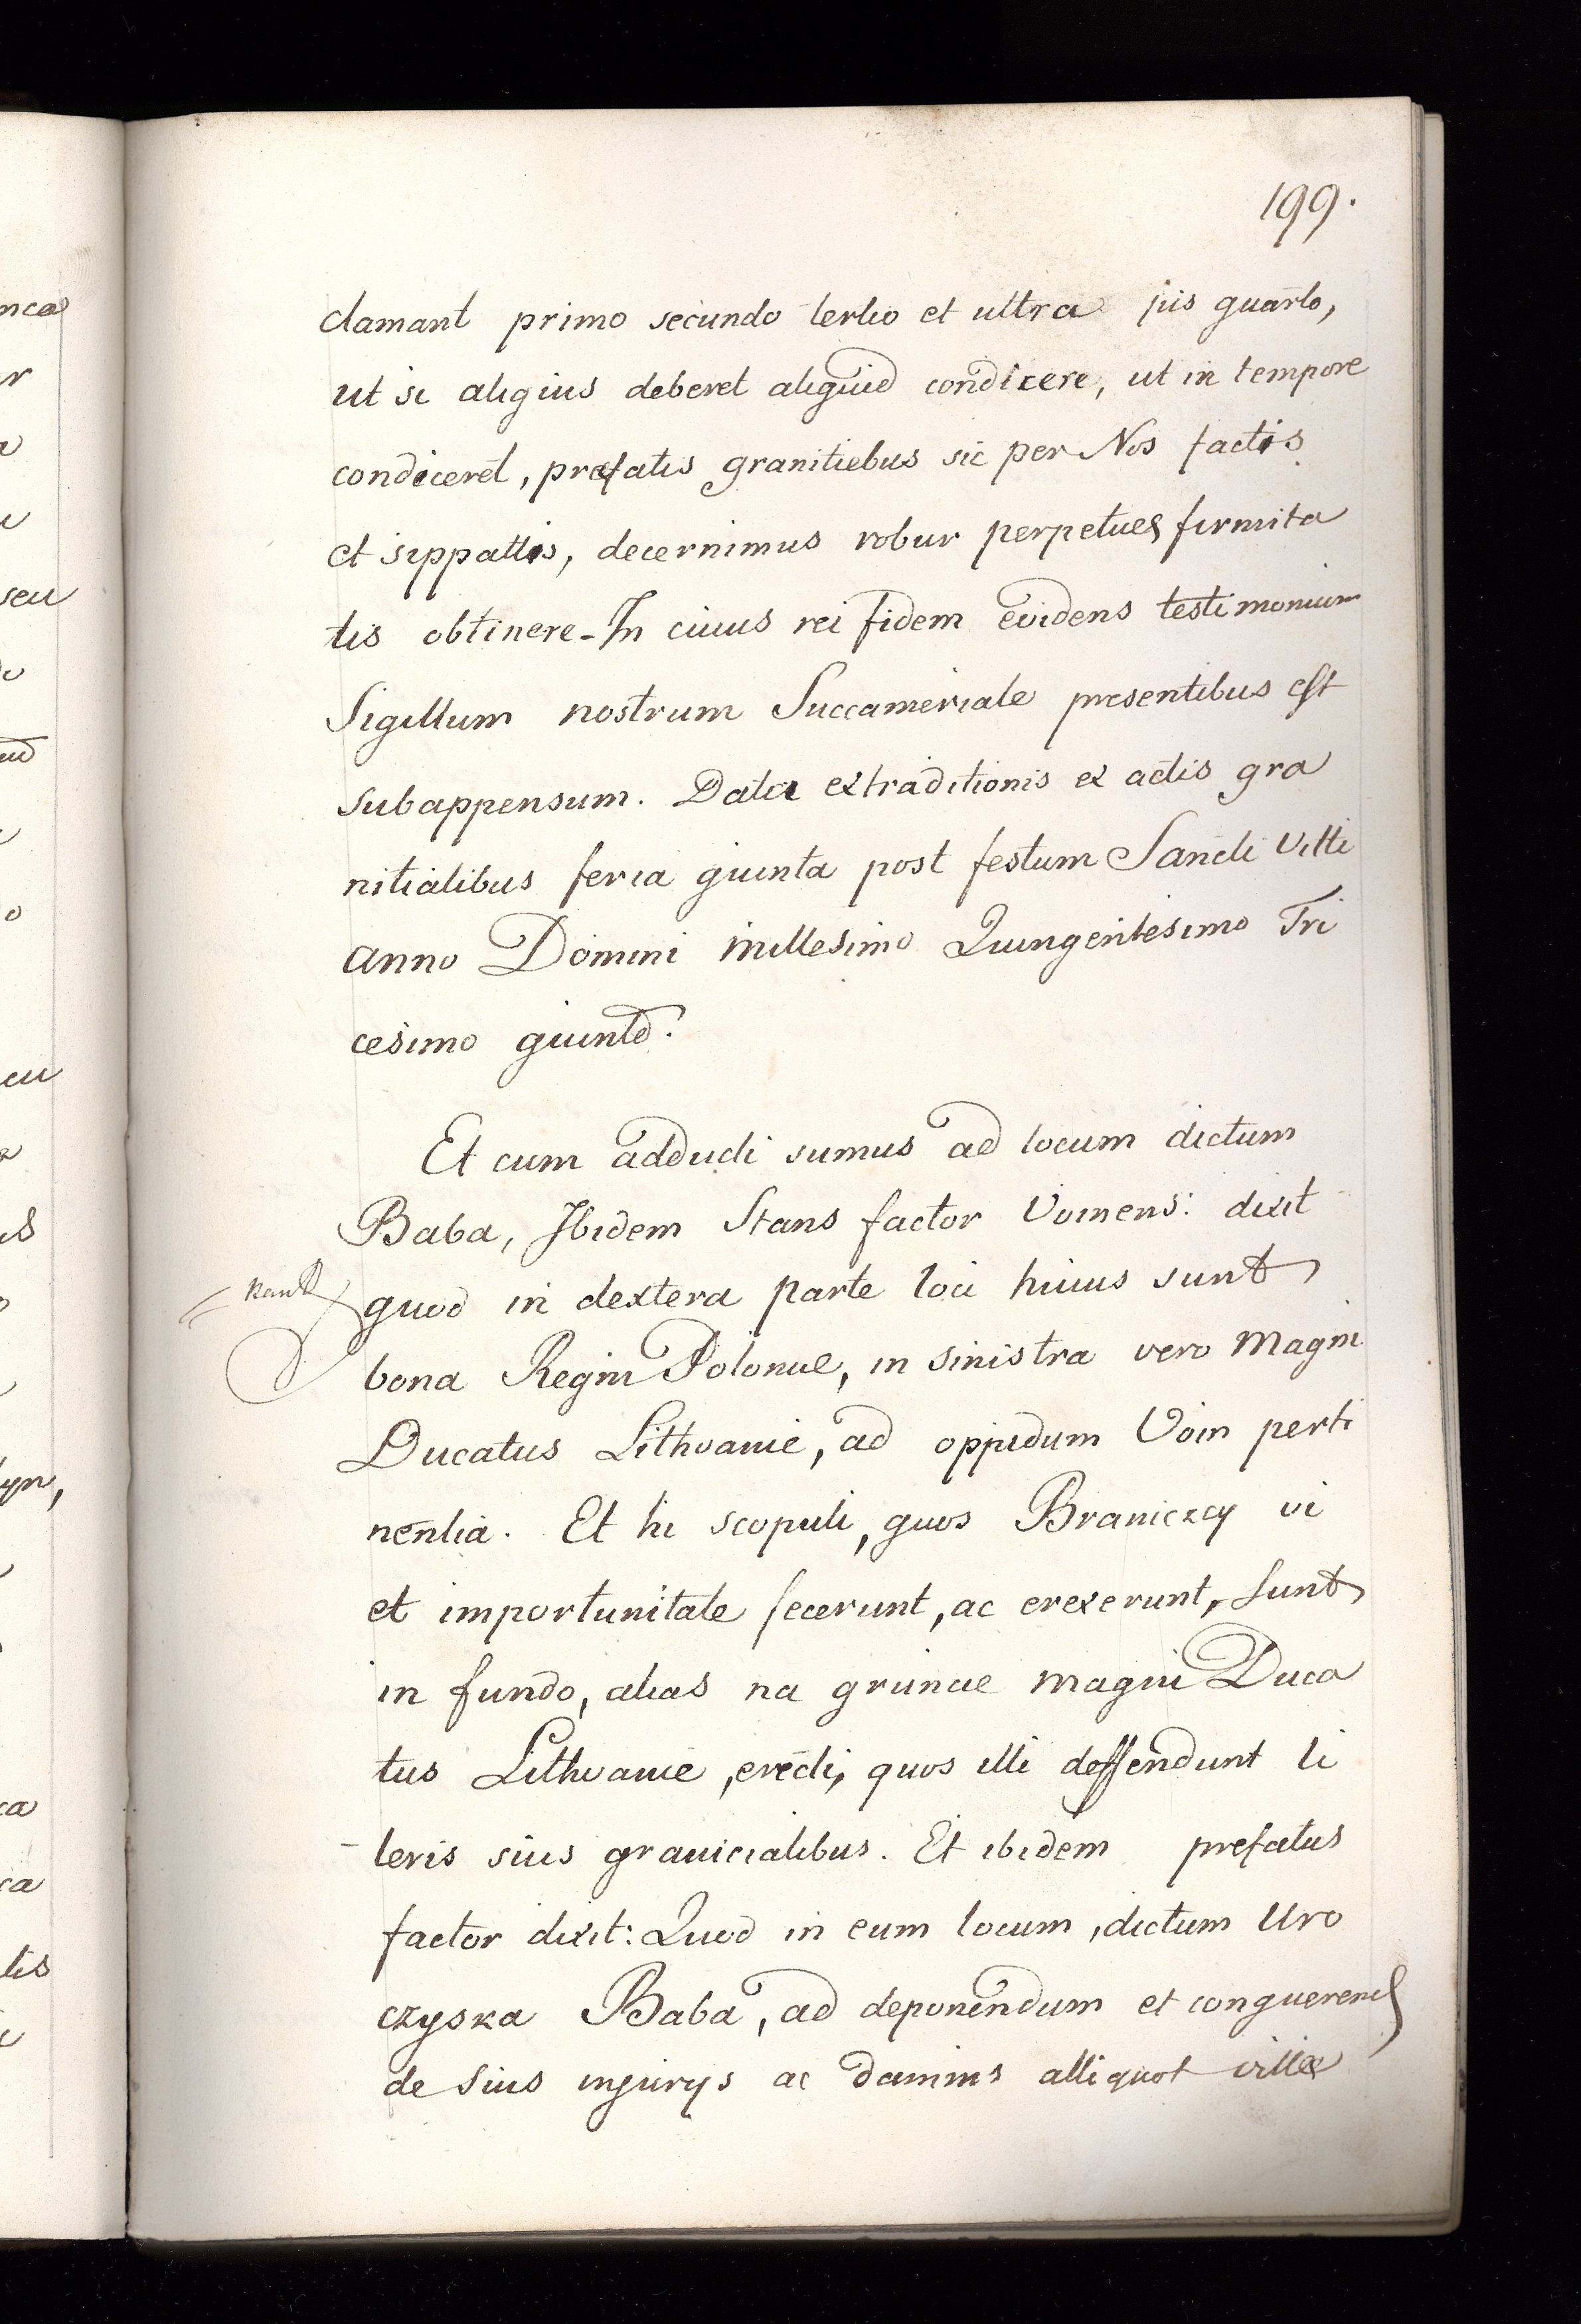 199.
clamant primo secundo tertio et ultra jus quarto,
ut si aliqius deberet aliquid condicere, ut in tempore
condiceret, prefatis granitiebus sic per Nos factis
et sippattis, decernimus robur perpetues firmita
tis obtinere - In cuius rei fidem evidens testimonium
Sigillum nostrum Succameriale presentibus est
subappensum. Data extraditionis ex actis gra
nitialibus feria quinta post festum Sancti Vitti
anno Domini millesimo Quingentesimo Tri
cesimo quinto.
Et cum adducti sumus ad locum dictum
Baba, Ibidem Stans factor Voinens: dixit
quod in dextera parte loci huius sunt
bona Regni Polonie, in sinistra vero Magni
Ducatus Lithvanie, ad oppidum Voin perti
nentia. Et hi scopuli, quos Braniczcy vi
et importunitate fecerunt, ac erexerunt, sunt
in fundo, alias na gruncie magni Duca
tus Lithvanie, erecti, quos illi deffendunt li
-teris suis granicialibus. Et ibidem prefatus
factor dixit: Quod in eum locum, dictum Uro
czyska Baba, ad deponendum et conquerend
de suis injurys ac damnis alliquot villæ